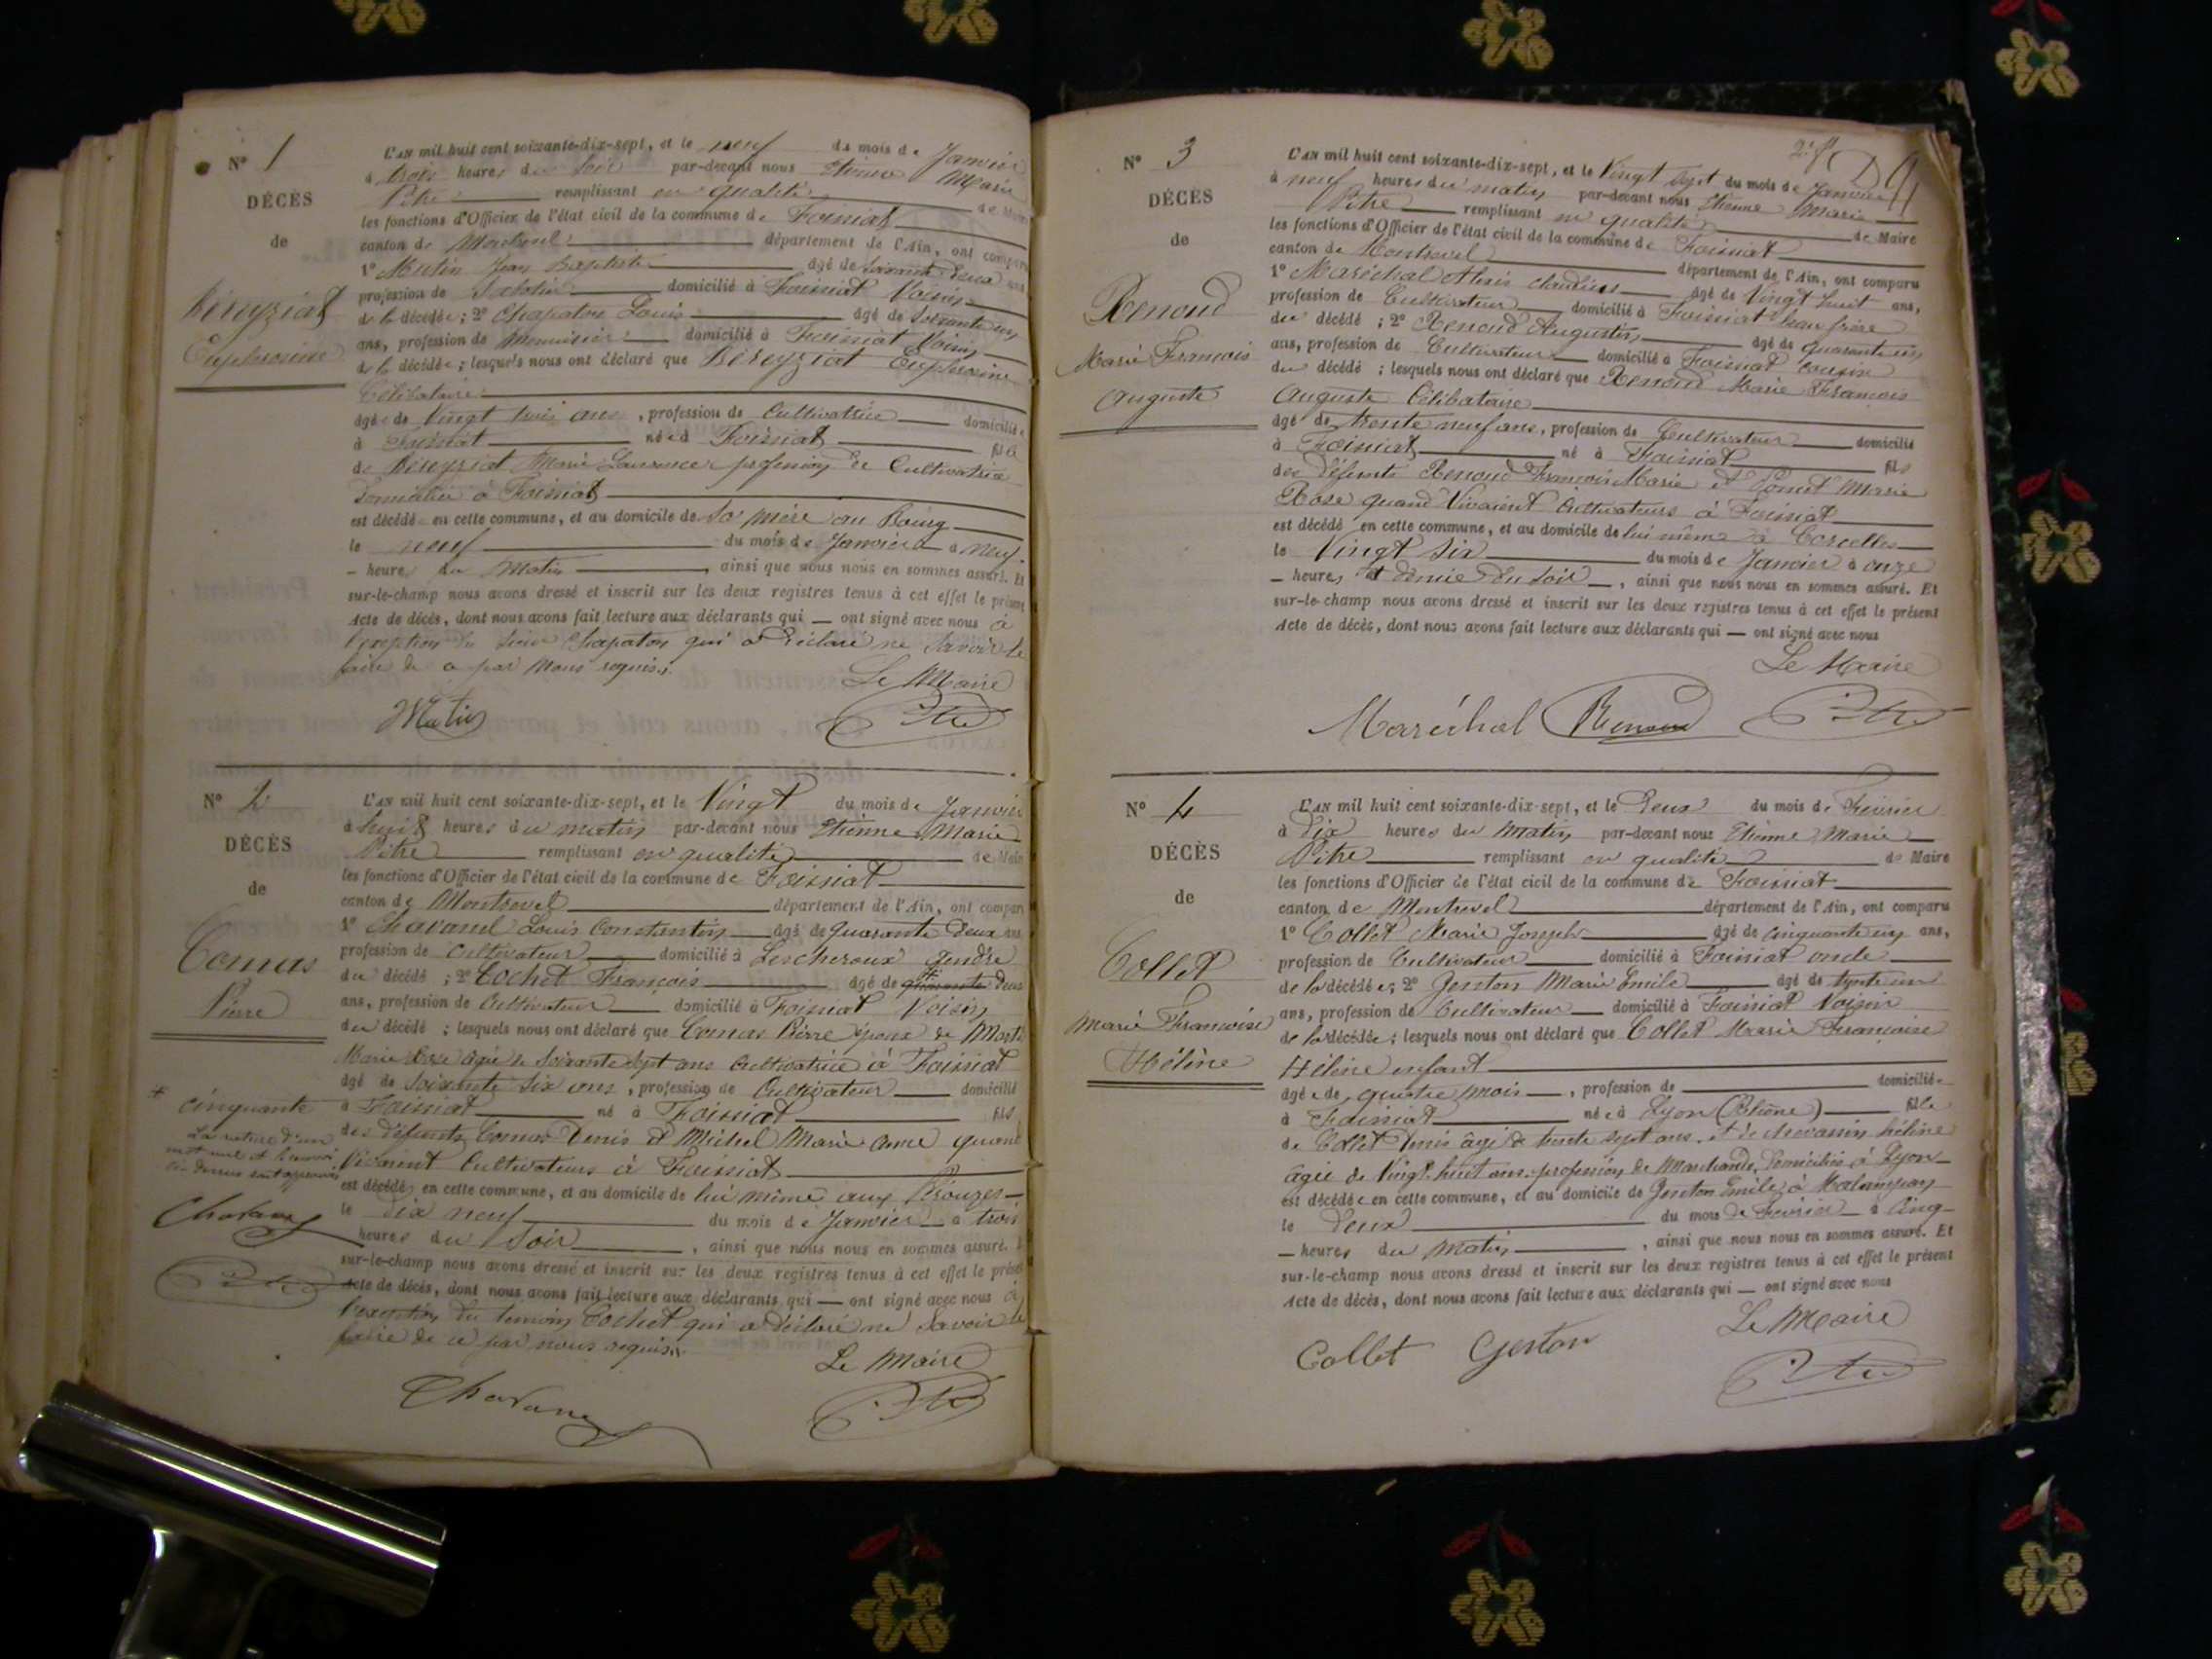 N° 1
DÉCÈS
de
Béreyziat
Euphrosine
L'AN mil huit cent soixante-dix-sept, et le neuf du mois de Janvier
à trois heures du soir par-devant nous Etienne Marie
Pitre remplissant en qualité de Maire
les fonctions d'Officier de l'état civil de la commune de Foissiat
canton de Montrevel département de l'Ain, ont comparu
1° Mutin Jean Baptiste âgé de soixante deux ans
profession de domicilié à Foissiat Voisin
de la décédée ; 2° Chapaton Louis âgé de soixante un
ans, profession de Menuisier domicilié à Foissiat Voisin
de la décédée ; lesquels nous ont déclaré que Béreyziat Euphrosine
Célibataire
âgée de Vingt trois ans, profession de Cultivatrice domiciliée
à Foissiat née à Foissiat fille
de Béreyziat Marie Laurence profession de Cultivatrice
domiciliée à Foissiat
est décédée en cette commune, et au domicile de sa mère au Bourg
le neuf du mois de Janvier à neuf
heures du Matin, ainsi que nous nous en sommes assuré. Et
sur-le-champ nous avons dressé et inscrit sur les deux registres tenus à cet effet le présent
Acte de décès, dont nous avons fait lecture aux déclarants qui — ont signé avec nous à
l'exception du sieur Chapaton qui a déclaré ne savoir le
faire de ce par Nous requis.
Le Maire
Mutin Pitre
N° 2
DÉCÈS
de
Comas
Pierre
L'AN mil huit cent soixante-dix-sept, et le Vingt du mois de Janvier
à huit heures du matin par-devant nous Etienne Marie
Pitre remplissant en qualité de Maire
les fonctions d'Officier de l'état civil de la commune de Foissiat
canton de Montrevel département de l'Ain, ont comparu
1° Chavanel Louis Constantin âgé de quarante deux ans
profession de Cultivateur domicilié à Lescheroux gendre
du décédé ; 2° Cochet François âgé de quarante deux
ans, profession de Cultivateur domicilié à Foissiat Voisin
du décédé ; lesquels nous ont déclaré que Comas Pierre époux de
Marie Lise âgée de soixante sept ans Cultivatrice à Foissiat
âgé de soixante six ans, profession de Cultivateur domicilié
à Foissiat né à Foissiat fils
des défunts Comas Denis et Michel Marie Anne quand
Vivaient Cultivateurs à Foissiat
est décédé en cette commune, et au domicile de lui même aux
le dix neuf du mois de Janvier à trois
heures du soir, ainsi que nous nous en sommes assuré. Et
sur-le-champ nous avons dressé et inscrit sur les deux registres tenus à cet effet le présent
Acte de décès, dont nous avons fait lecture aux déclarants qui — ont signé avec nous à
l'exception du temoin Cochet qui a déclaré ne savoir le
faire de ce par nous requis.
Le Maire
Pitre
* cinquante
La rature d'un
mot nul et le renvoi
ci-dessus est approuvé
N° 3
DÉCÈS
de
Renoud
Marie François
Auguste
L'AN mil huit cent soixante-dix-sept, et le Vingt sept du mois de Janvier
à neuf heures du matin par-devant nous Etienne Marie
Pitre remplissant en qualité de Maire
les fonctions d'Officier de l'état civil de la commune de Foissiat
canton de Montrevel département de l'Ain, ont comparu
1° Maréchal Alexis Claudius âgé de Vingt huit ans,
profession de Cultivateur domicilié à Foissiat beau frère
du décédé ; 2° Renoud Augustin âgé de quarante un
ans, profession de Cultivateur domicilié à Foissiat cousin
du décédé ; lesquels nous ont déclaré que Renoud Marie François
Auguste Célibataire
âgé de trente neuf ans, profession de Cultivateur domicilié
à Foissiat né à Foissiat fils
des défunts Renoud François Marie et Marie
Rose quand Vivaient Cultivateurs à Foissiat
est décédé en cette commune, et au domicile de lui même à Corcelles
le Vingt six du mois de Janvier à onze
heures et demie du soir, ainsi que nous nous en sommes assuré. Et
sur-le-champ nous avons dressé et inscrit sur les deux registres tenus à cet effet le présent
Acte de décès, dont nous avons fait lecture aux déclarants qui — ont signé avec nous
Le Maire
Maréchal Renoud Pitre
N° 4
DÉCÈS
de
Collet
Marie Françoise
Hélène
L'AN mil huit cent soixante-dix-sept, et le Deux du mois de Février
à Dix heures du Matin par-devant nous Etienne Marie
Pitre remplissant en qualité de Maire
les fonctions d'Officier de l'état civil de la commune de Foissiat
canton de Montrevel département de l'Ain, ont comparu
1° Collet Marie Joseph âgé de cinquante un ans,
profession de Cultivateur domicilié à Foissiat oncle
de la décédée ; 2° Genton Marie Emile âgé de trente un
ans, profession de Cultivateur domicilié à Foissiat Voisin
de la décédée ; lesquels nous ont déclaré que Collet Marie Françoise
Hélène enfant
âgée de quatre mois, profession de domiciliée
à Foissiat née à Lyon (Rhône) fille
de Collet Denis âgé de trente sept ans et de Hélène
âgée de Vingt huit ans profession de Marchands, domiciliés à Lyon
est décédée en cette commune, et au domicile de Genton Emile, à
le Deux du mois de Février à Cinq
heures du Matin, ainsi que nous nous en sommes assuré. Et
sur-le-champ nous avons dressé et inscrit sur les deux registres tenus à cet effet le présent
Acte de décès, dont nous avons fait lecture aux déclarants qui — ont signé avec nous
Le Maire
Collet Genton Pitre